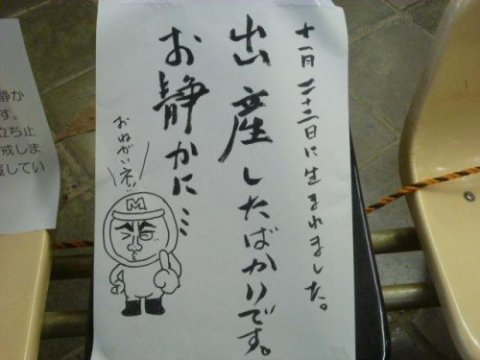 十一月二十二日に生まれました。
出産したばかりです。
お静かに…
おねがいネッ!
M
静か
す。
立ち止
戒しま
してい